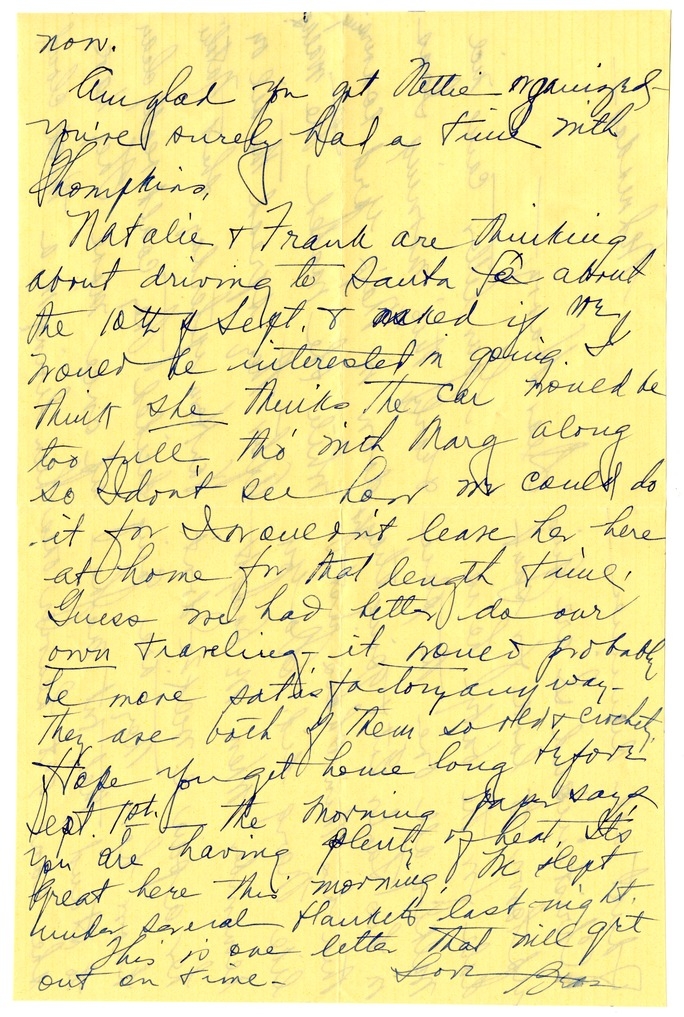 now.
Am glad you got Nettie organized -
you've surely had a time with
Thompkins.
Natalie & Frank are thinking
about driving to Santa Fe about
the 10th of Sept. & asked if we
would be interested in going. I
think she thinks the car would be
too full tho' with Marg along
so I don't see how we could do
it for I wouldn't leave her here
at home for that length time.
Guess we had better do our
own traveling - it would probably
be more satisfactory anyway -
they are both of them so old & crochety.
Hope you get home long before
Sept. 1st. - the morning paper says
you are having plenty of heat. It's
great here this morning. We slept
under several blankets last night.
This is one letter that will get
out on time - Love